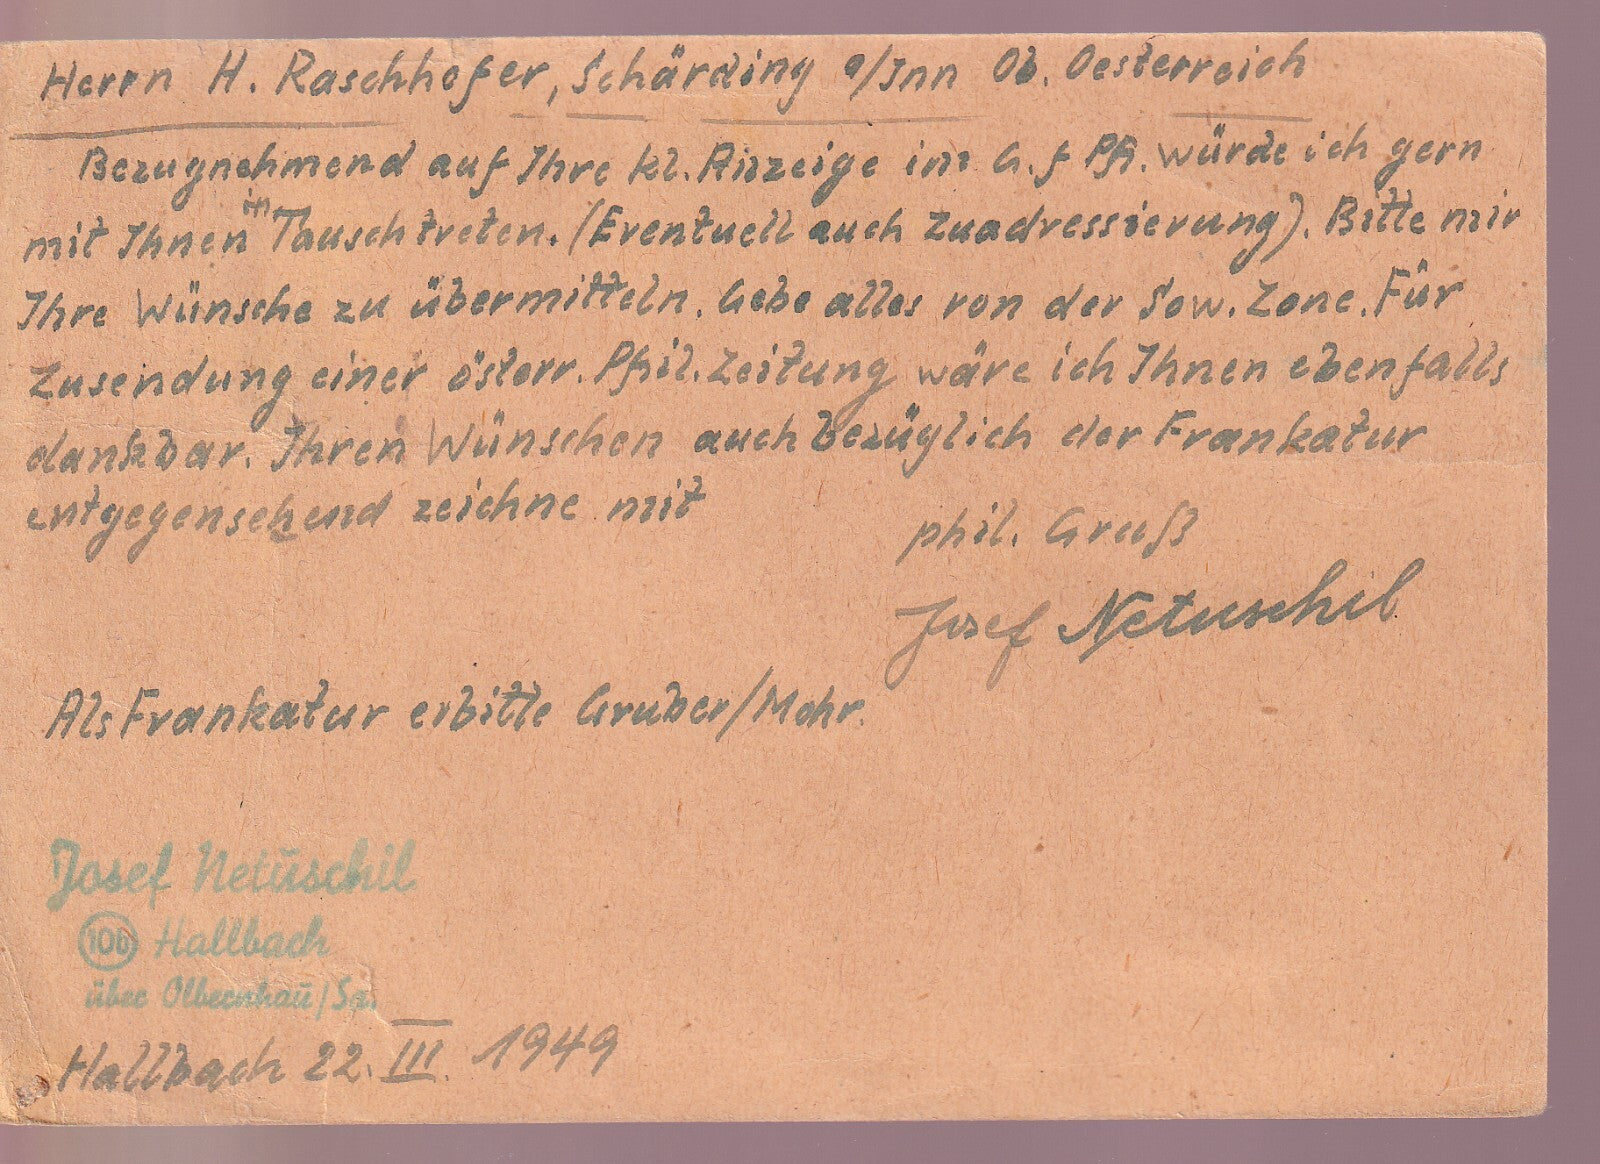 Herrn H. Raschhofer, Schärding a/Inn Ob. Oesterreich
Bezugnehmend auf Ihre kl. Anzeige im G. f Ph. würde ich gern
mit Ihnen in Tausch treten. (Eventuell auch Zuadressierung). Bitte mir
Ihre Wünsche zu übermitteln. Gebe alles von der Sow. Zone. Für
Zusendung einer österr. Phil. Zeitung wäre ich Ihnen ebenfalls
dankbar. Ihren Wünschen auch bezüglich der Frankatur
entgegensehend zeichne mit
phil. Gruß
Josef Netuschil
Als Frankatur erbitte Gruber/Mohr.
Josef Netuschil
10b Hallbach
über Olbernhau/Sa.
Hallbach 22. III. 1949